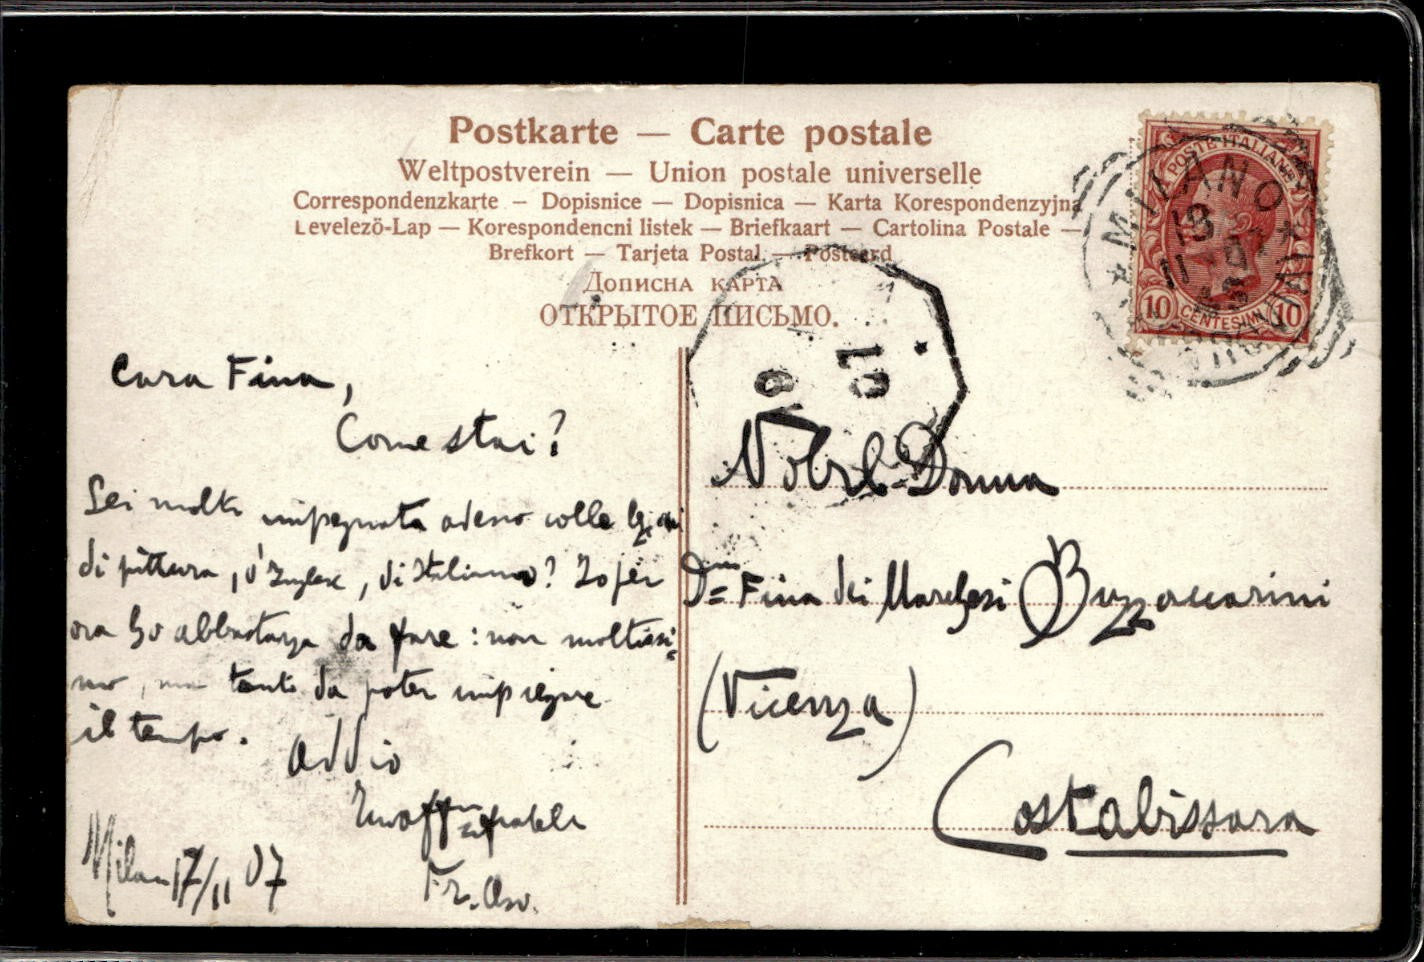 Postkarte — Carte postale
Weltpostverein — Union postale universelle
Correspondenzkarte — Dopisnice — Dopisnica — Karta Korespondenzyjna
Levelező-Lap — Korespondencni listek — Briefkaart — Cartolina Postale —
Brefkort — Tarjeta Postal — Postcard
Дописна карта
ОТКРЫТОЕ ПИСЬМО.
POSTE ITALIANE
10 CENTESIMI 10
MILANO
Cara Fina,
Come stai?
Sei molto impegnata adesso colle
di pittura, d'Inglese, di Italiano? Io per
ora ho abbastanza da fare: non moltissi=
mo, ma tanto da poter impiegare
il tempo.
addio
Milano 17/11 07
Nobil Donna
Fina dei Marchesi Buzzaccarini
(Vicenza)
Costabissara